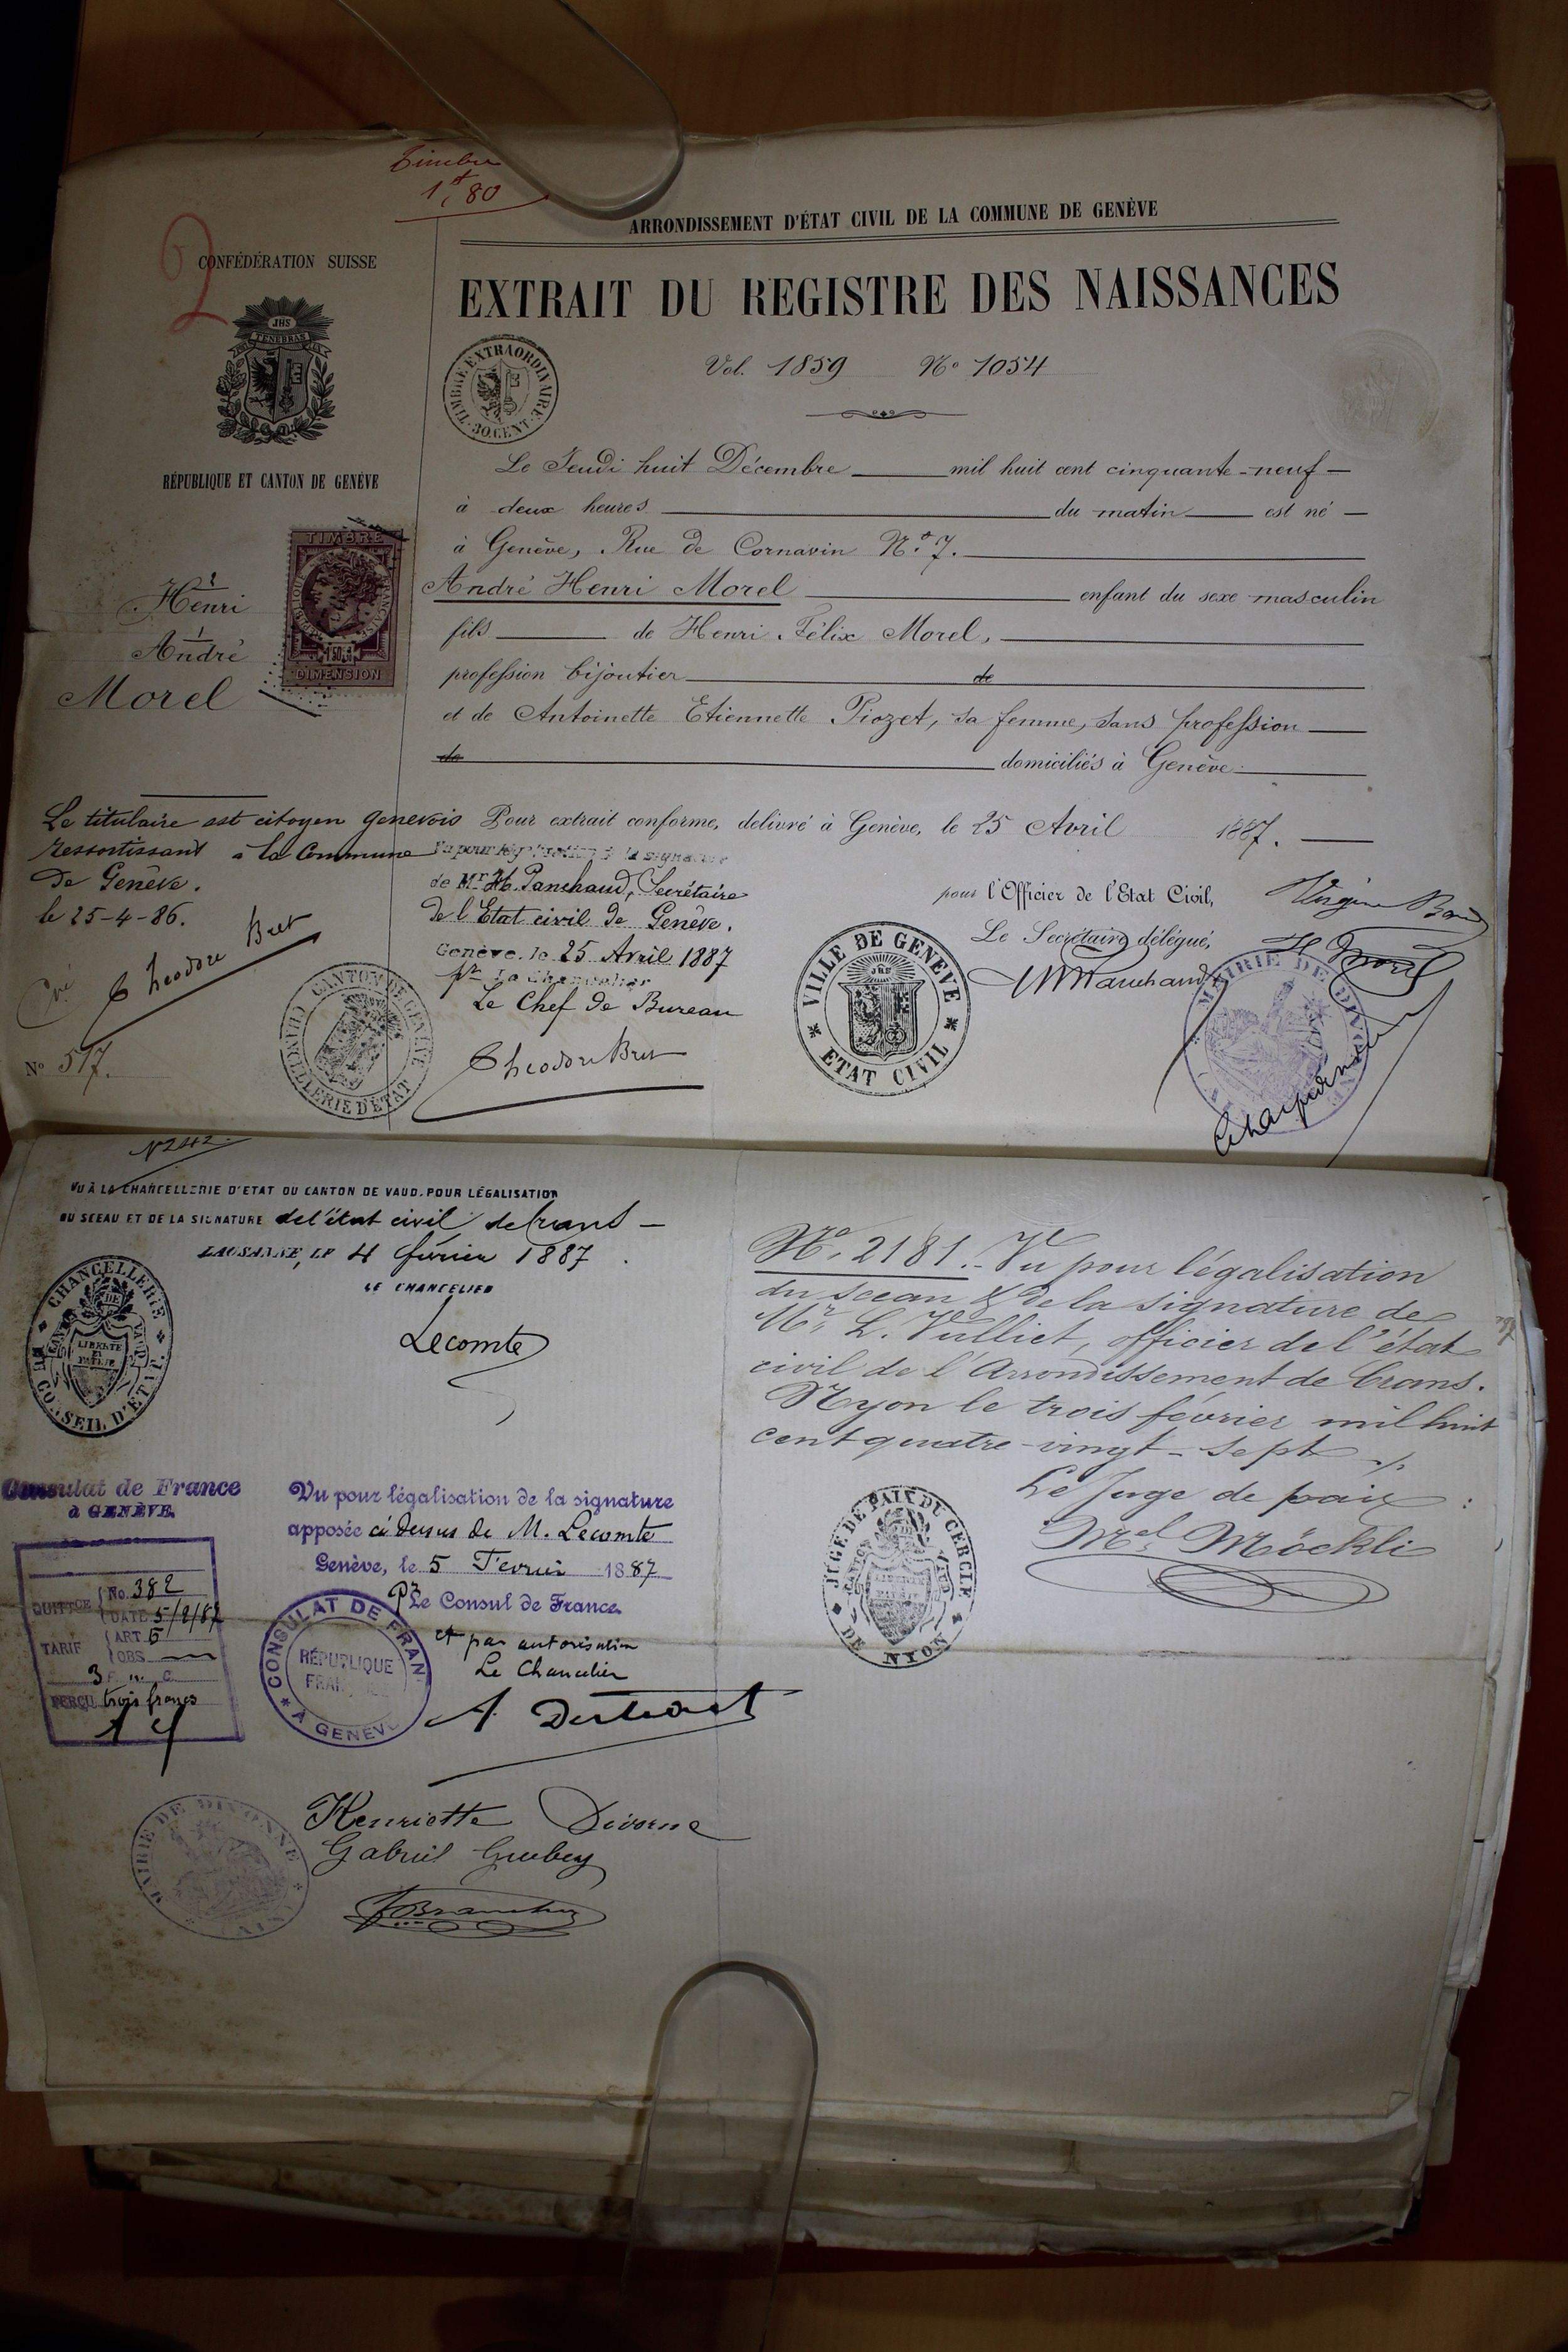 Timbre
1f,80
ARRONDISSEMENT D'ÉTAT CIVIL DE LA COMMUNE DE GENÈVE
CONFÉDÉRATION SUISSE
JHS
TENEBRAS
RÉPUBLIQUE ET CANTON DE GENÈVE
EXTRAIT DU REGISTRE DES NAISSANCES
TIMBRE EXTRAORDINAIRE
30 CENT.
Vol. 1859 No 1054
Le Jeudi huit Décembre mil huit cent cinquante-neuf
à deux heures du matin est né
à Genève, Rue de Cornavin No. 7.
André Henri Morel enfant du sexe masculin
fils de Henri Félix Morel,
profession bijoutier de
et de Antoinette Etiennette Piozet, sa femme, sans profession
de domiciliés à Genève
TIMBRE
DIMENSION
2
Henri
1
André
Morel
Le titulaire est citoyen genevois
ressortissant à la Commune
de Genève.
le 25-4-86.
Theodore Bret
No 517.
Pour extrait conforme, délivré à Genève, le 25 Avril 1887.
Vu pour légalisation de la signature
de Mr H. Panchaud, Secrétaire
de l'Etat civil de Genève.
Genève, le 25 Avril 1887
pr Le Chancelier
Le Chef de Bureau
Theodore Bret
CHANCELLERIE D'ETAT CANTON DE GENEVE
pour l'Officier de l'Etat Civil,
Le Secrétaire délégué,
VILLE DE GENEVE
JHS
ETAT CIVIL
MAIRIE DE DIVONNE
No 242
VU À LA CHANCELLERIE D'ETAT DU CANTON DE VAUD, POUR LÉGALISATION
DU SCEAU ET DE LA SIGNATURE de l'état civil de Crans
LAUSANNE, LE 4 février 1887.
LE CHANCELIER
Lecomte
CHANCELLERIE DU CONSEIL D'ETAT
CANTON DE VAUD
LIBERTE
ET
PATRIE
No. 2181. Vu pour légalisation
du sceau & de la signature de
Mr. L. Vulliet, officier de l'état
civil de l'Arrondissement de Crans.
Nyon le trois février mil huit
cent quatre-vingt-sept
Le Juge de paix :
Mel Möckli
JUGE DE PAIX DU CERCLE
DE NYON
Consulat de France
à GENÈVE.
QUITTCE No. 382
DATE 5/2/87
TARIF ART 6
OBS
3 F. " C.
PERÇU trois francs
Vu pour légalisation de la signature
apposée ci dessus de M. Lecomte
Genève, le 5 Fevrier 1887
Pr Le Consul de France
et par autorisation
Le Chancelier
CONSULAT DE FRANCE
RÉPUBLIQUE
FRANÇAISE
A GENEVE
MAIRIE DE DIVONNE
AIN
Henriette Divorne
Gabriel